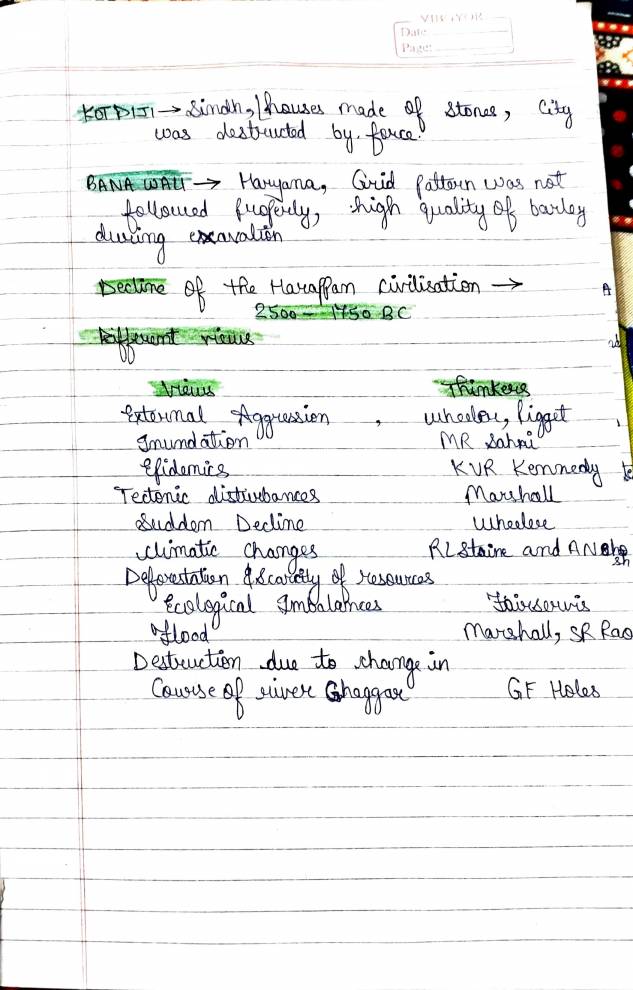 VIBGYOR
Date:
Page:
KOT DIJI → Sindh, houses made of stones, City
was destructed by force.
BANA WALI → Haryana, Grid pattern was not
followed properly, high quality of barley
during excavation
Decline of the Harappan civilisation →
2500 - 1750 BC
Different views
Views Thinkers
External Aggression , wheeler, Pigget
Inundation MR Sahni
Epidemics KVR Kennedy
Tectonic disturbances Marshall
Sudden Decline wheeler
climatic changes RL Staine and AN Gho
sh
Deforestation & Scarcity of resources
Ecological Imbalances Fairservis
Flood Marshall, SR Rao
Destruction due to change in
Course of river Ghaggar GF Holes